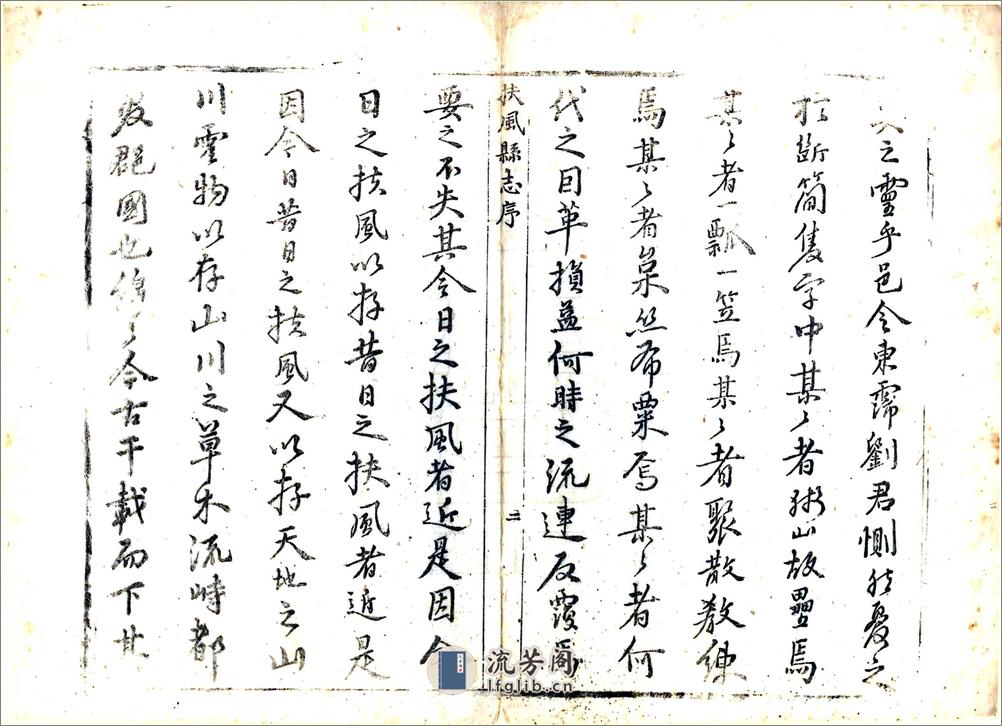 之靈乎邑令東霈劉君惻然憂之
於斷簡隻字中某〻者 山故壘焉
某〻者一瓢一笠焉某〻者聚散教
焉某〻者枲絲布粟焉某〻者何
代之因革損益何時之流連反覆焉
扶風縣志序
三
要之不失其今日之扶風者近是因今
日之扶風以存昔日之扶風者近是
因今日昔日之扶風又以存天地之山
川靈物以存山川之草木流峙都
鄙郡國也 〻今古千載而下其
流芳阁
lfglib.cn